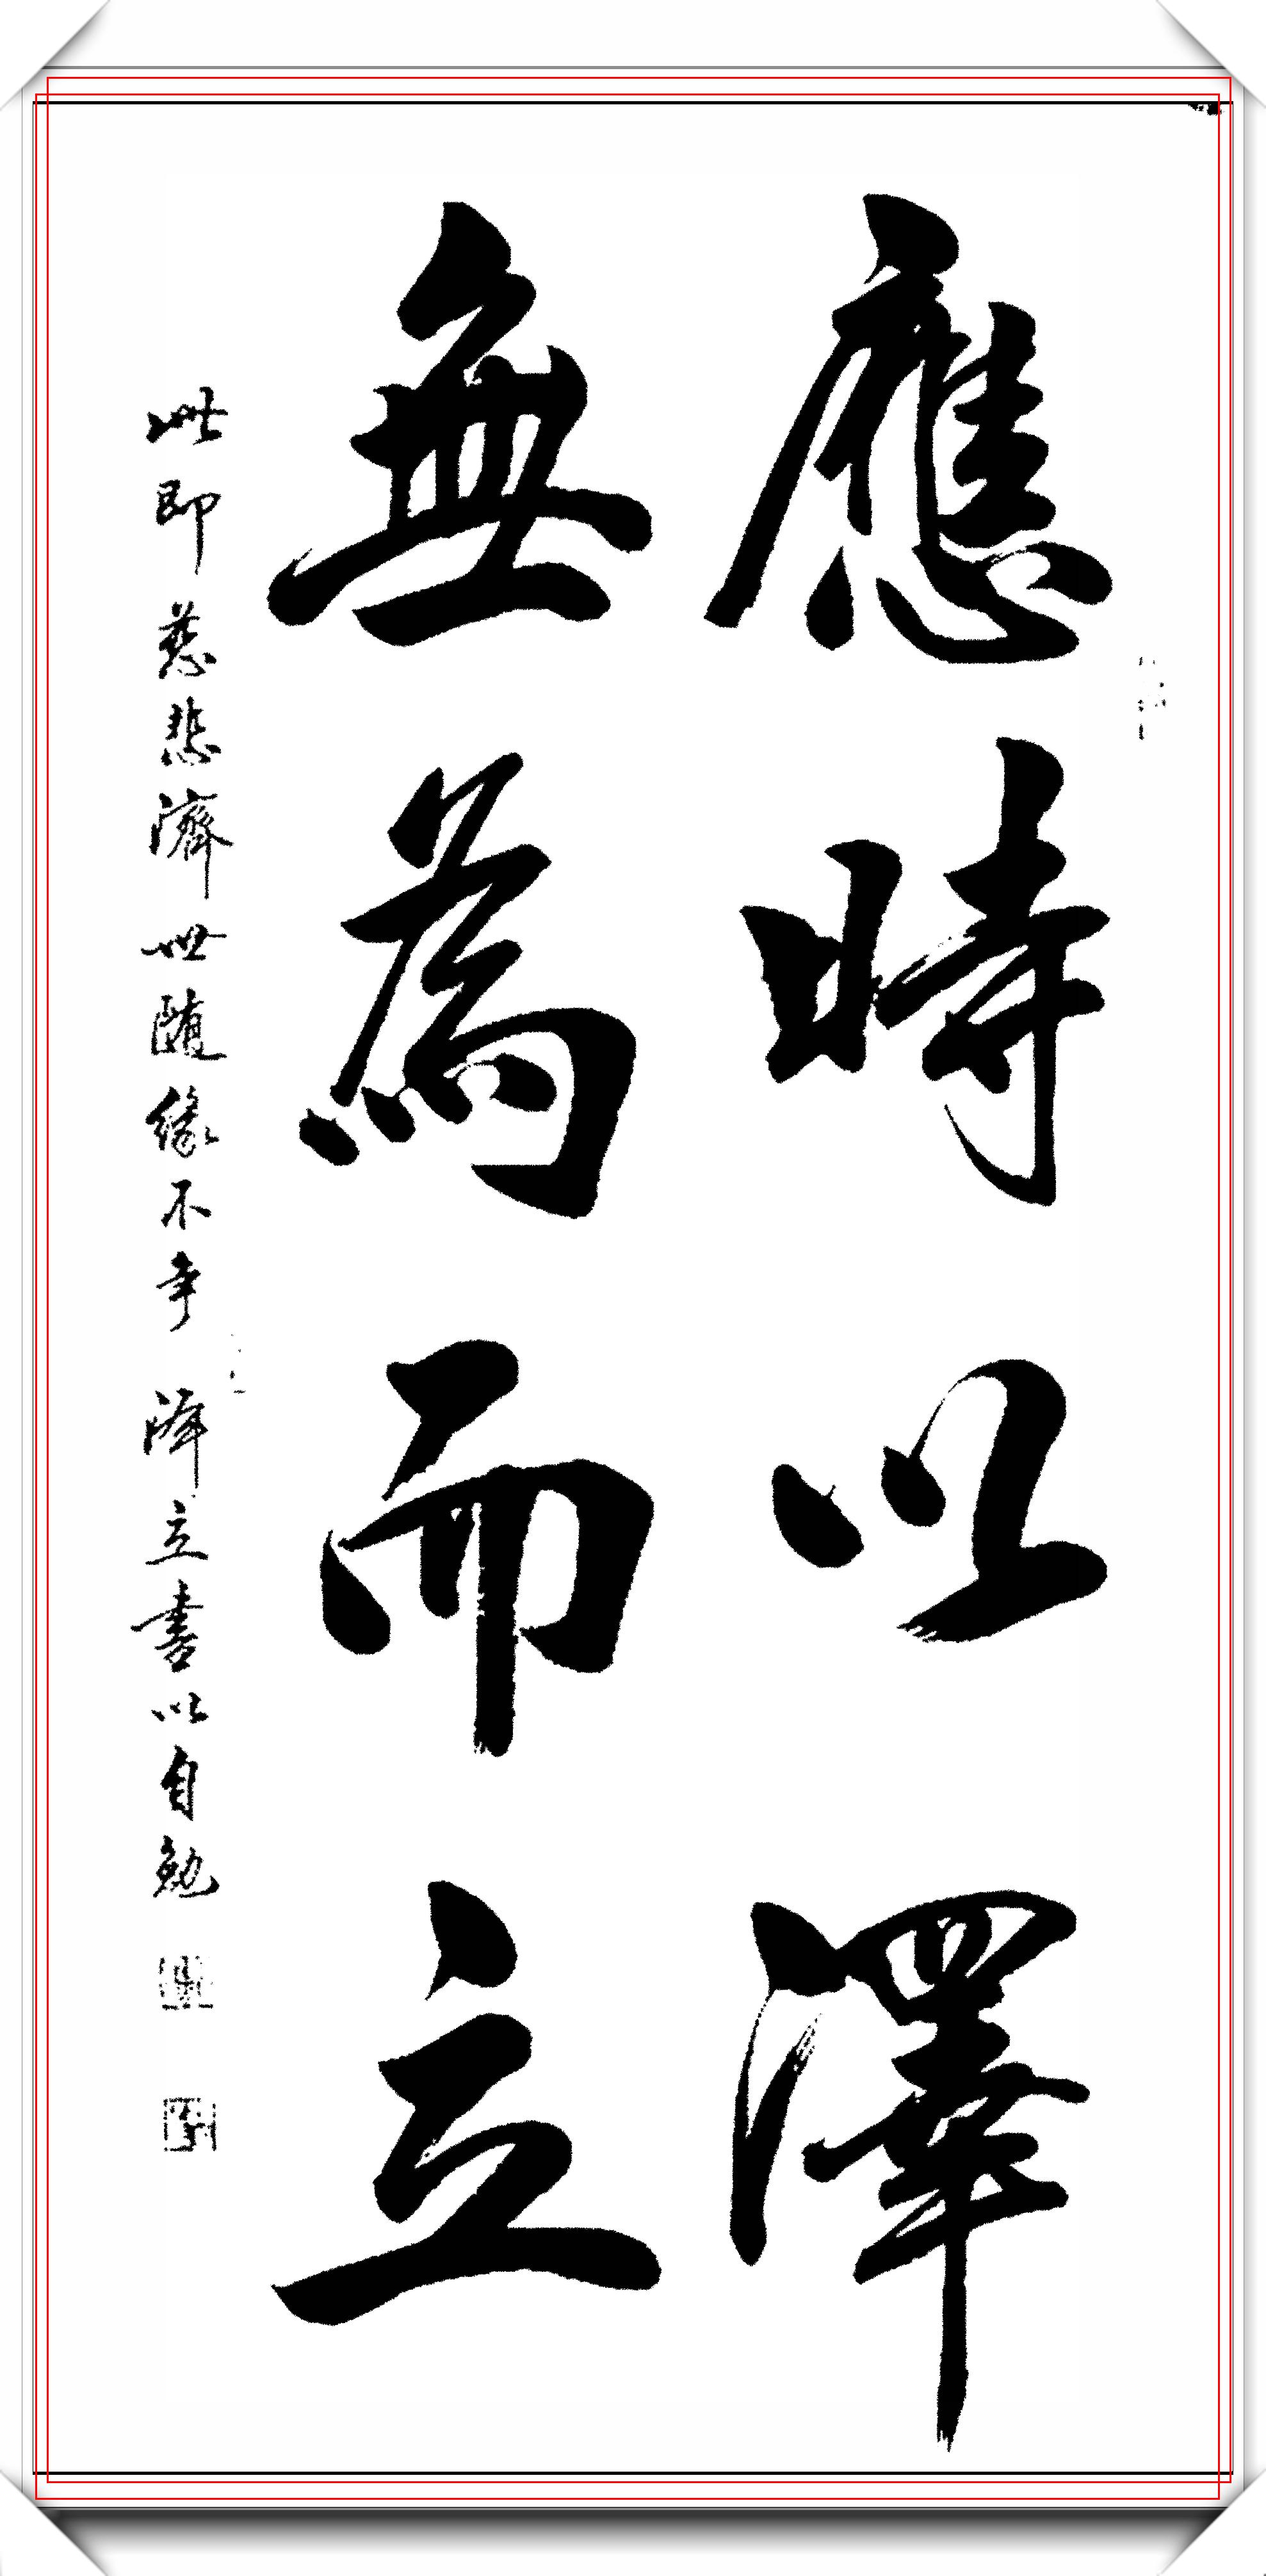 應時以澤
無為而立
此即慈悲濟世隨緣不争 澤立書以自勉